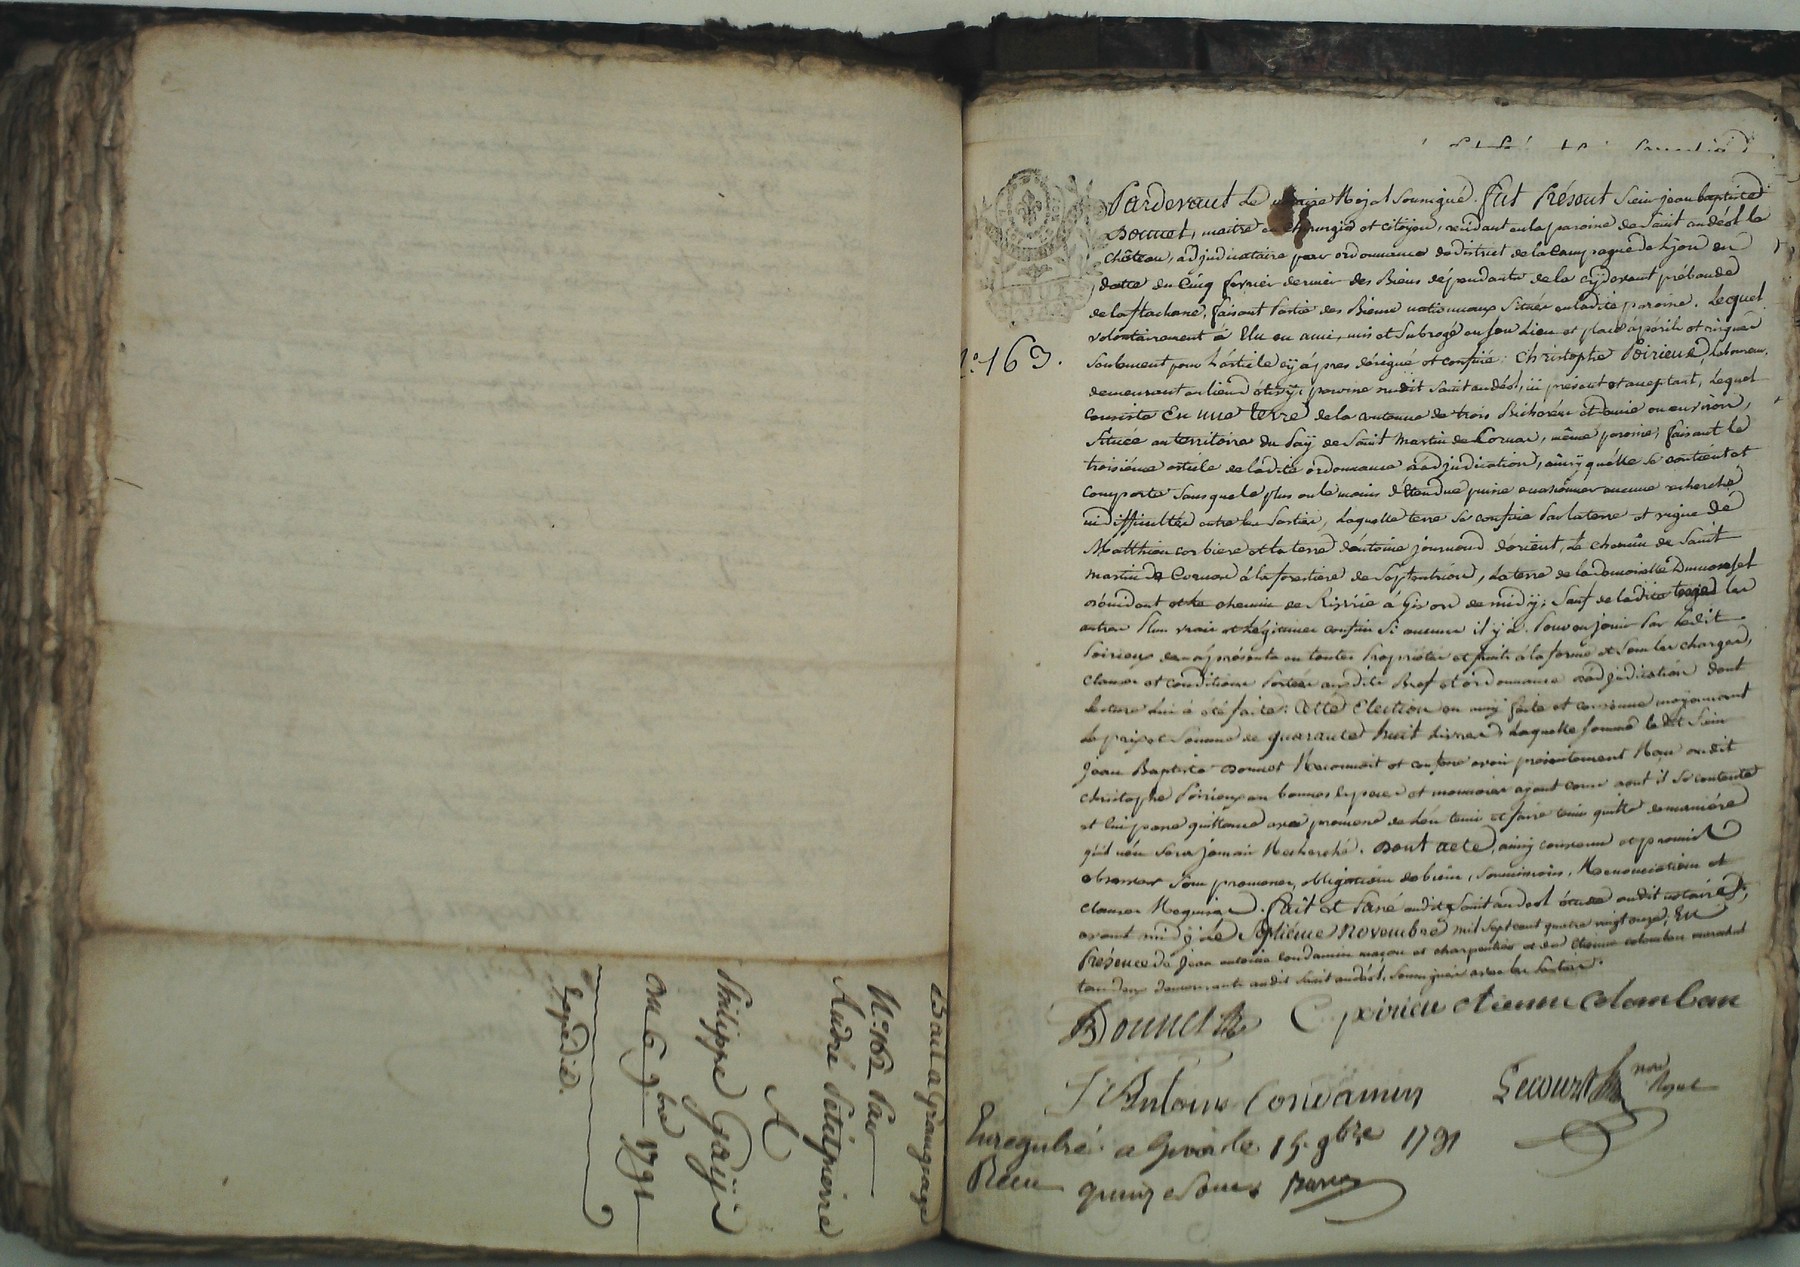 Bail a Grangeage
N.° 162 Par
André Petitpierre
A
Philippe Gaÿ
Du 6 9bre 1791
Expédié.
N.° 163.
Pardevant Le notaire Royal soussigné. fut Présent sieur jean baptiste
Donnet, maitre en chirurgie et citoyen, résidant en la paroisse de Saint andéol le
château, adjudicataire par ordonnance du District de la Campagne de Lyon en
datte du Cinq fevrier dernier des Biens dépendants de la cÿdevant prébande
de la flachane, faisant Partie des Biens nationnaux Situés en ladite paroisse. Lequel
volontairement à Elu en ami, mis et subrogé en son Lieu et place à périls et risques
seulement pour L'article cÿ après désigné et confiné: Christophe Poirieux, Laboureur,
demeurant au lieu paroisse dudit saint andéol, ici présent et acceptant, Lequel
consiste En une terre de la contenue de trois Bicherées et demie ou environ,
Située au territoire du Paÿ de saint Martin de Cornas, même paroisse, faisant le
troisiéme article de ladite ordonnance d'adjudication, ainsÿ qu'elle se contient et
comporte sans que le plus ou le moins d'étendue puisse occasionner aucune recherche
ni difficultés entre les Parties, Laquelle terre se confine Par la terre et vigne de
Matthieu corbiere et la terre d'antoine journoud d'orient, Le chemin de Saint
martin de Cornas à la forestiere de Septentrion, La terre de la demoiselle
d'occident et Le chemin de Rivirie à Givors de midÿ; Sauf de ladite terre les
autres Plus vrais et Légitimes confins si aucuns il y à. Pour en jouir Par Ledit
Poirieux dès à présent en toutes Propriétés et fruits à la forme et sous les charges,
clauses et conditions Portées audit Bref et ordonnance d'adjudication dont
lecture Lui à été faite: Cette Election en ami faite et convenue moÿennant
Le prix et Somme de quarante huit Livres Laquelle somme le dit Sieur
Jean Baptiste Donnet Reconnoit et confesse avoir présentement Reçu dudit
christophe Poirieux en bonnes Especes et monnoies aÿant cours dont il Se contente
et Lui passe quittance avec promesse de L'en tenir et faire tenir quitte de maniére
qu'il n'en sera jamais Recherché. Dont acte, ainsÿ convenu et promis
observer Sous promesses, obligations de biens, Soumissions, Renonciations et
clauses Requises. fait et Passé audit Saint andéol étude dudit notaire,
avant midÿ Le septiéme Novembre mil sept cent quatre vingt onze, En
Présence de Jean antoine Condamin maçon et charpentier et de Etienne colomban marechal
tous deux demeurants audit Saint andéol, soussignés avec les Parties.
Donnet C poirieu etienne colomban
J Antoine Condamin Lecourt nore Royal
Enregistré a Givors le 15. 9bre 1791
Reçu quinze sous